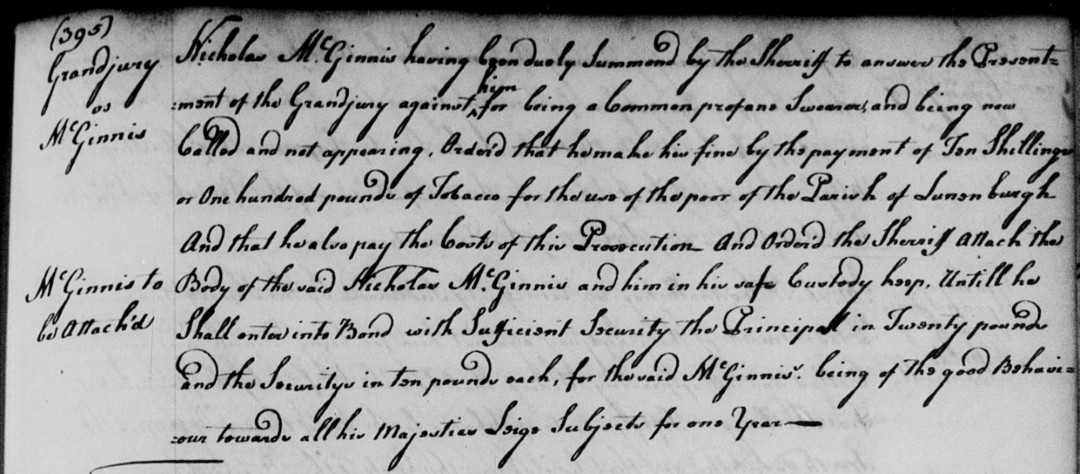 (395)
Grandjury
vs
McGinnis
Nicholas Mc.Ginnis having been duely Summond by the Sherriff to answer the Present=
him
=ment of the Grandjury against ‸ for being a Common profane Swearer, and being now
Called and not appearing, Orderd that he make his fine by the payment of Ten Shillings
or One hundred pounds of Tobacco for the use of the poor of the Parish of Lunenburgh
And that he also pay the Costs of this Prosecution And Orderd the Sherriff Attach the
McGinnis to
be Attach'd
Body of the said Nicholas Mc.Ginnis and him in his safe Custody keep, Untill he
Shall enter into Bond with Sufficient Security the Principal in Twenty pounds
and the Securitys in ten pounds each, for the said McGinnis's. being of the good Behavi=
=our towards all his Majesties Leige Subjects for one Year —